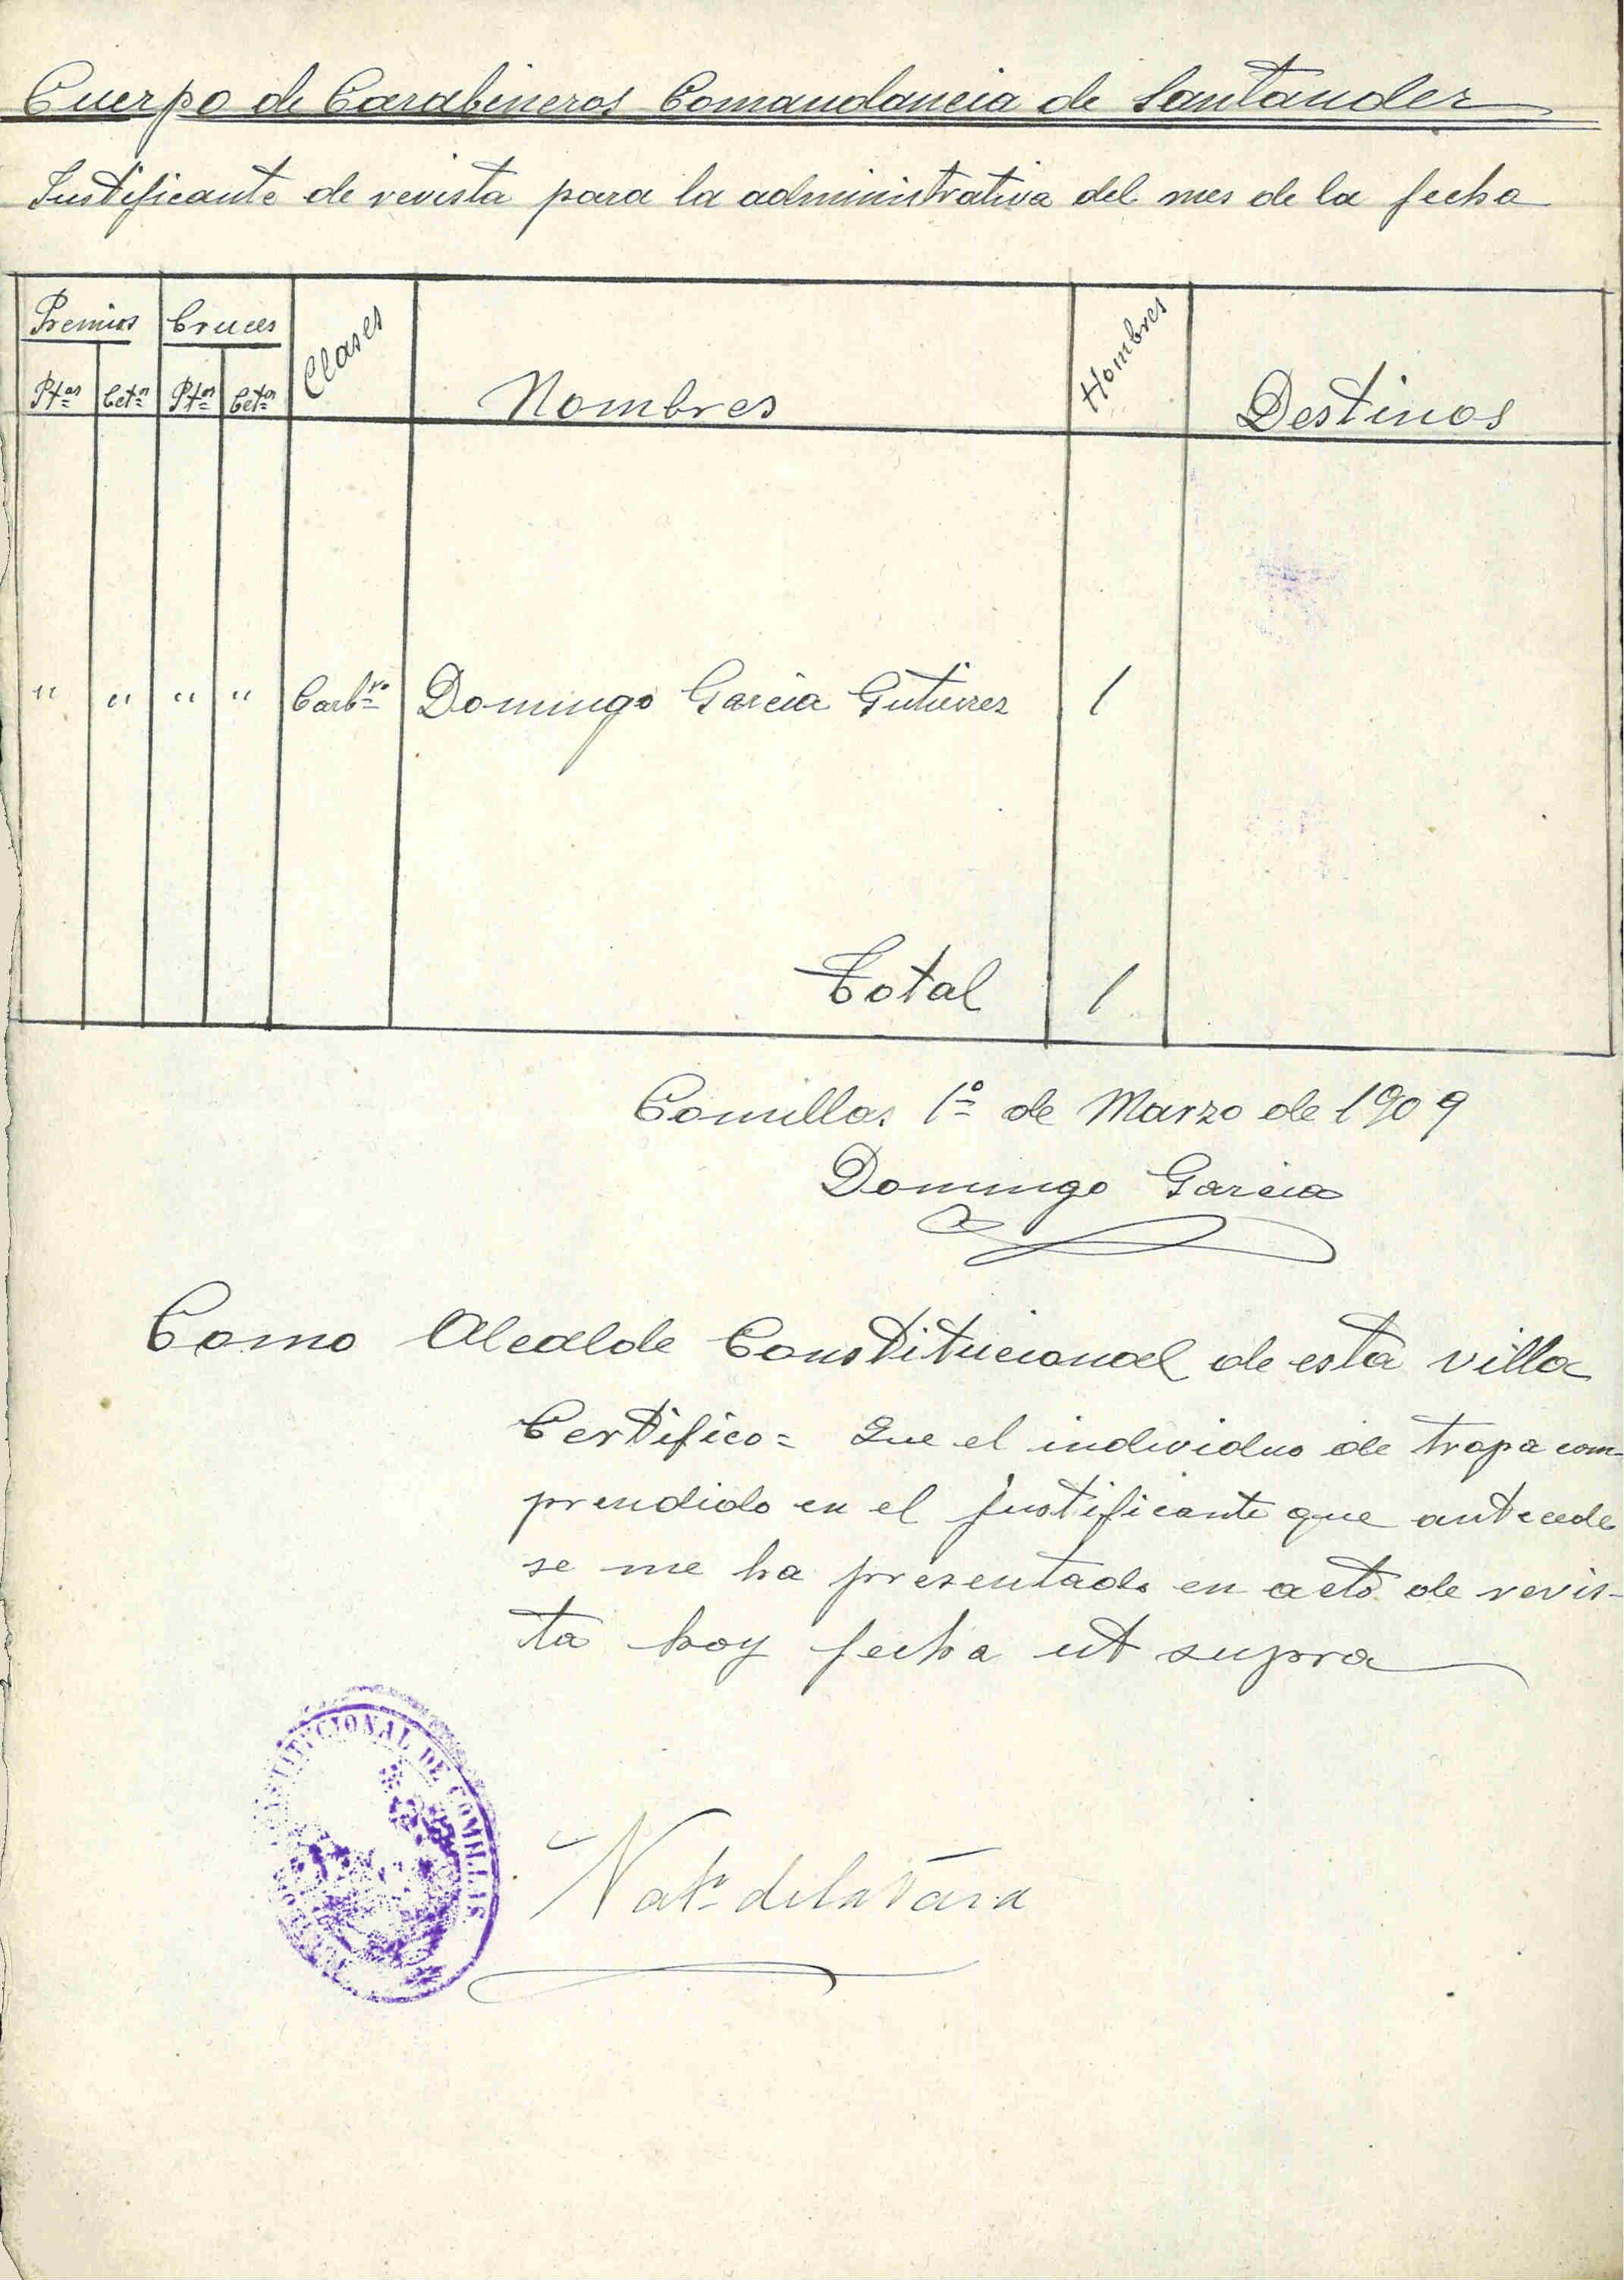 Cuerpo de Carabineros Comandancia de Santander
Justificante de revista para la administrativa del mes de la fecha
Premios Cruces Clases Nombres Hombres Destinos
Ptas Cets Ptas Cets
" " " " Carbro Domingo Garcia Gutierrez 1
Total 1
Comillas 1º de Marzo de 1909
Domingo Garcia
Como Alcalde Constitucional de esta villa
Certifico= Que el individuo de tropa com-
prendido en el justificante que antecede
se me ha presentado en acto de revis-
ta hoy fecha ut supra
CONSTITUCIONAL DE COMILLAS
de la